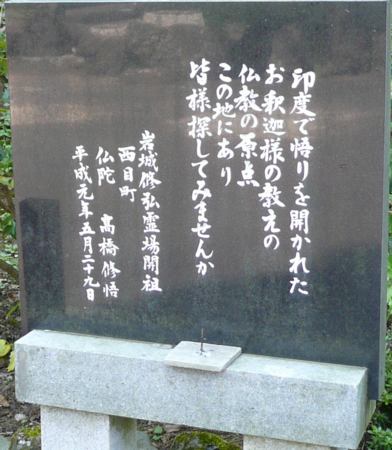 印度で悟りを開かれた
お釈迦様の教えの
仏教の原点
この地にあり
皆様探してみませんか
岩城修弘霊場開祖
西目町
仏陀 高橋修悟
平成元年五月二十九日